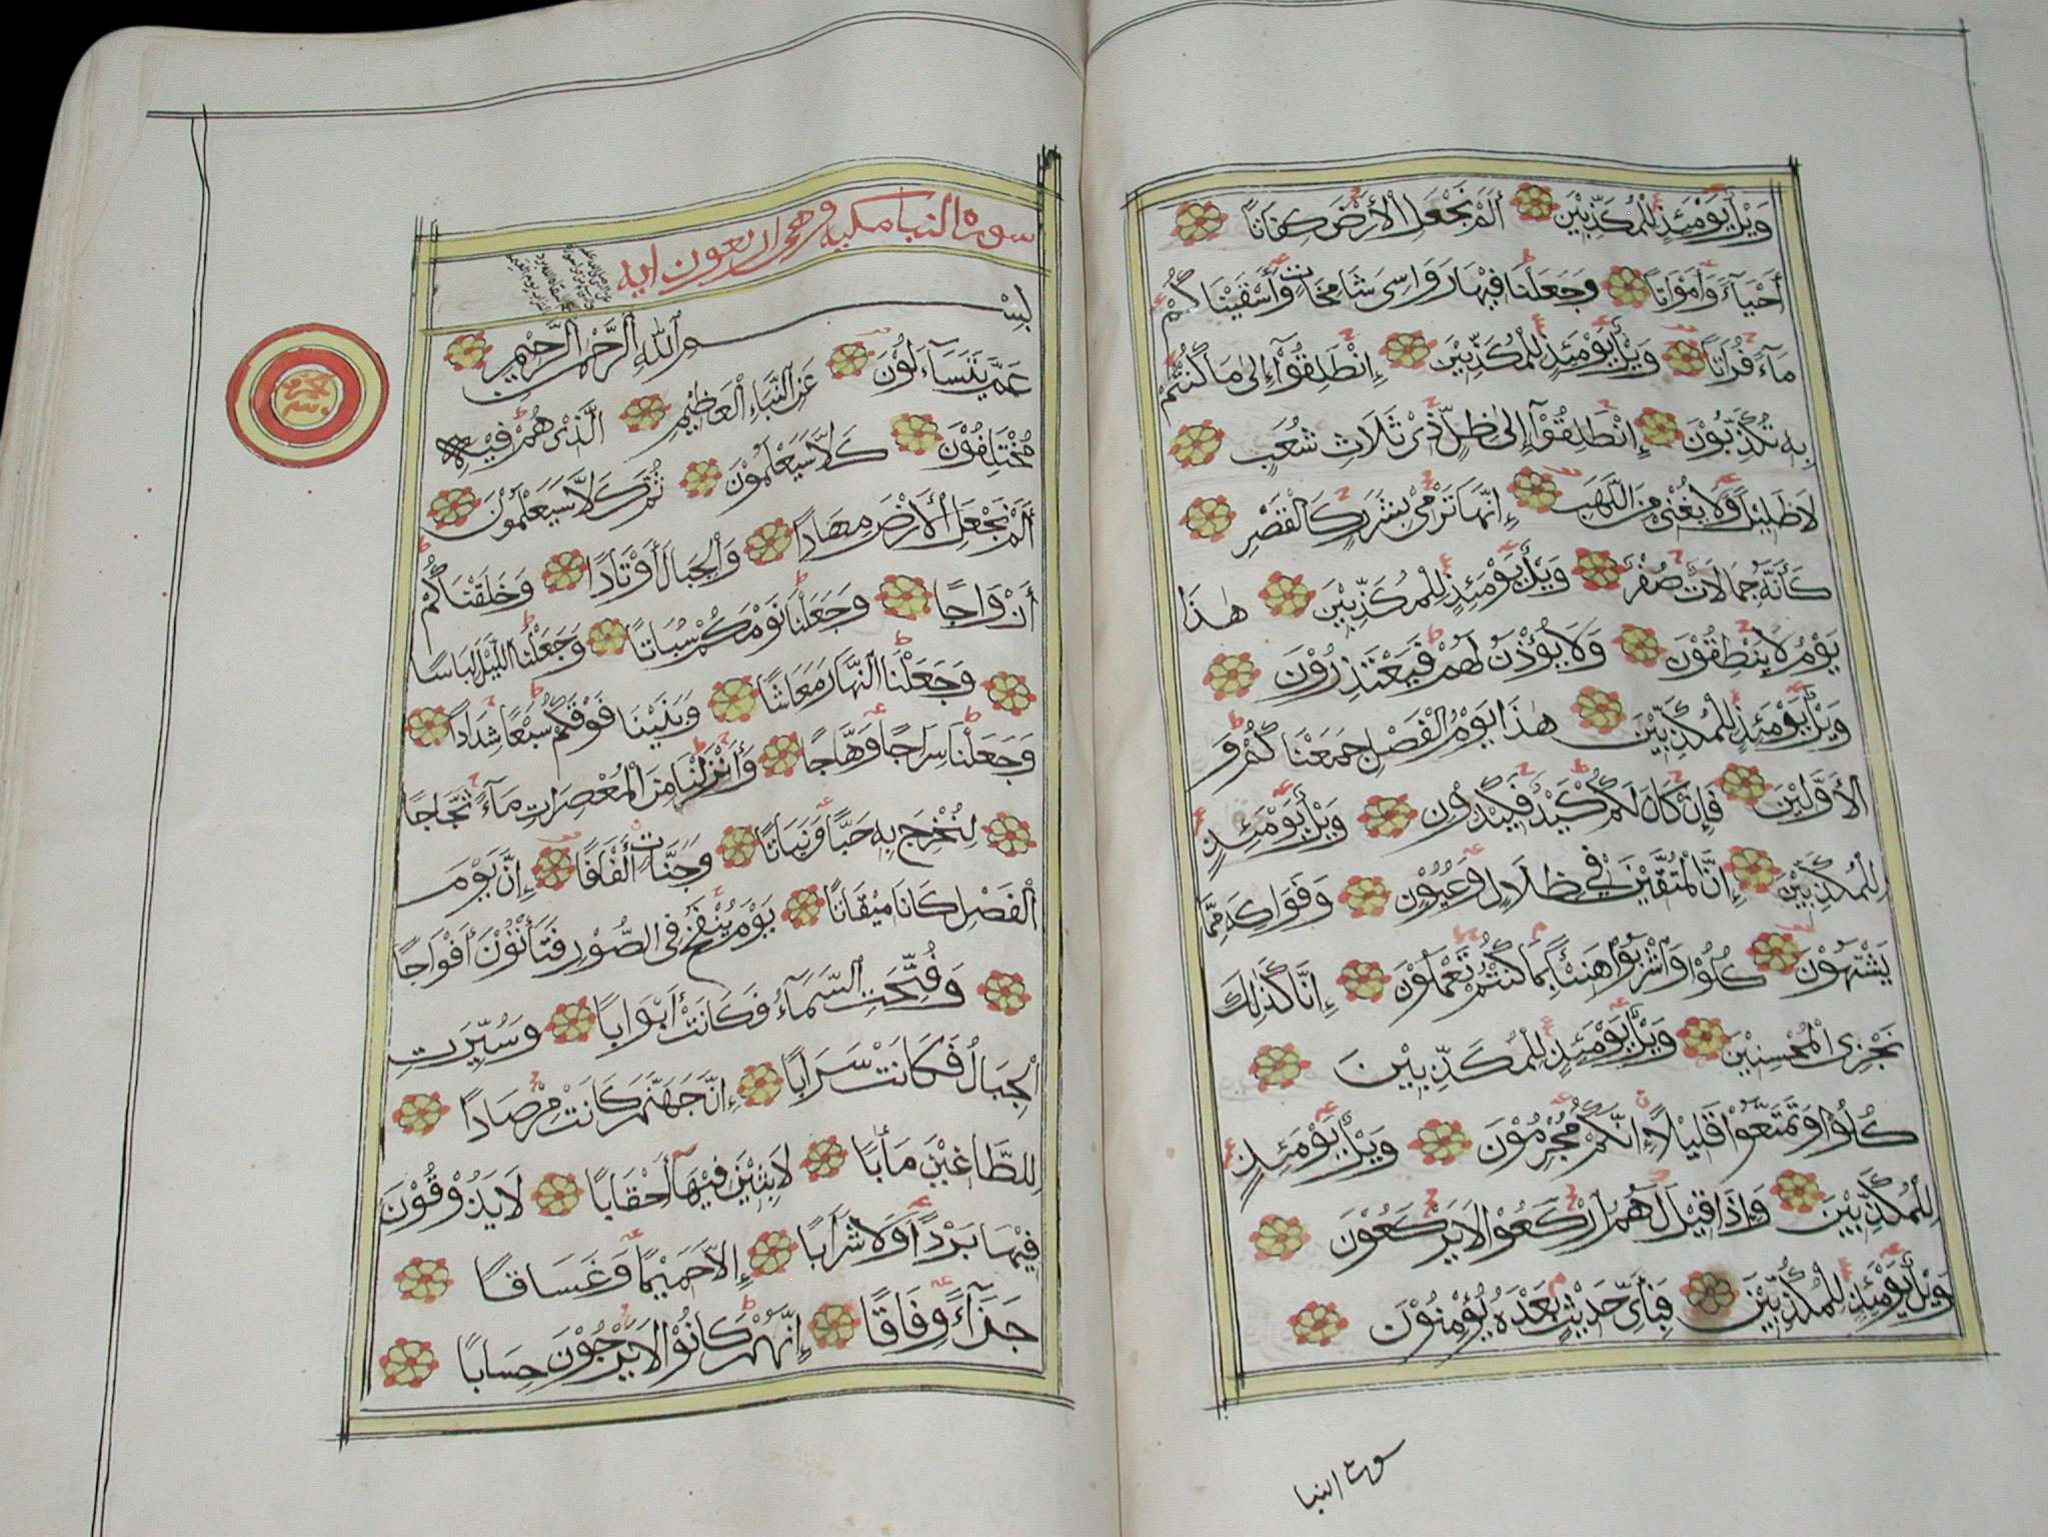 وَيْلٌ يَوْمَئِذٍ لِلْمُكَذِّبِيْنَ أَلَمْ نَجْعَلِ الْأَرْضَ كِفَاتًا
أَحْيَآءً وَأَمْوَاتًا وَجَعَلْنَا فِيْهَا رَوَاسِىَ شَامِخَاتٍ وَأَسْقَيْنَاكُمْ
مَآءً فُرَاتًا وَيْلٌ يَوْمَئِذٍ لِلْمُكَذِّبِيْنَ إِنْطَلِقُوْآ إِلٰى مَا كُنْتُمْ
بِهِ تُكَذِّبُوْنَ إِنْطَلِقُوْآ إِلٰى ظِلٍّ ذِىْ ثَلَاثِ شُعَبٍ
لَا ظَلِيْلٍ وَلَا يُغْنِىْ مِنَ اللَّهَبِ إِنَّهَا تَرْمِىْ بِشَرَرٍ كَالْقَصْرِ
كَأَنَّهُ جِمَالَاتٌ صُفْرٌ وَيْلٌ يَوْمَئِذٍ لِلْمُكَذِّبِيْنَ هٰذَا
يَوْمُ لَا يَنْطِقُوْنَ وَلَا يُؤْذَنُ لَهُمْ فَيَعْتَذِرُوْنَ
وَيْلٌ يَوْمَئِذٍ لِلْمُكَذِّبِيْنَ هٰذَا يَوْمُ الْفَصْلِ جَمَعْنَاكُمْ وَ
الْأَوَّلِيْنَ فَإِنْ كَانَ لَكُمْ كَيْدٌ فَكِيْدُوْنِ وَيْلٌ يَوْمَئِذٍ
لِلْمُكَذِّبِيْنَ إِنَّ الْمُتَّقِيْنَ فِيْ ظِلَالٍ وَعُيُوْنٍ وَفَوَاكِهَ مِمَّا
يَشْتَهُوْنَ كُلُوْا وَاشْرَبُوْا هَنِيْئًا بِمَا كُنْتُمْ تَعْمَلُوْنَ إِنَّا كَذَالِكَ
نَجْزِى الْمُحْسِنِيْنَ وَيْلٌ يَوْمَئِذٍ لِلْمُكَذِّبِيْنَ
كُلُوْا وَتَمَتَّعُوْا قَلِيْلًا إِنَّكُمْ مُجْرِمُوْنَ وَيْلٌ يَوْمَئِذٍ
لِلْمُكَذِّبِيْنَ وَإِذَا قِيْلَ لَهُمُ ارْكَعُوْا لَا يَرْكَعُوْنَ
وَيْلٌ يَوْمَئِذٍ لِلْمُكَذِّبِيْنَ فَبِأَىِّ حَدِيْثٍ بَعْدَهُ يُؤْمِنُوْنَ
سورة النبا
سورة النبا مكية وهى اربعون اية
بِسْمِ اللهِ الرَّحْمٰنِ الرَّحِيْمِ
عَمَّ يَتَسَآءَلُوْنَ عَنِ النَّبَاءِ الْعَظِيْمِ الَّذِىْ هُمْ فِيْهِ
مُخْتَلِفُوْنَ كَلَّا سَيَعْلَمُوْنَ ثُمَّ كَلَّا سَيَعْلَمُوْنَ
أَلَمْ نَجْعَلِ الْأَرْضَ مِهَادًا وَالْجِبَالَ أَوْتَادًا وَخَلَقْنَاكُمْ
أَزْوَاجًا وَجَعَلْنَا نَوْمَكُمْ سُبَاتًا وَجَعَلْنَا اللَّيْلَ لِبَاسًا
وَجَعَلْنَا النَّهَارَ مَعَاشًا وَبَنَيْنَا فَوْقَكُمْ سَبْعًا شِدَادًا
وَجَعَلْنَا سِرَاجًا وَهَّاجًا وَأَنْزَلْنَا مِنَ الْمُعْصِرَاتِ مَآءً ثَجَّاجًا
لِنُخْرِجَ بِهِ حَبًّا وَنَبَاتًا وَجَنَّاتٍ أَلْفَافًا إِنَّ يَوْمَ
الْفَصْلِ كَانَ مِيْقَاتًا يَوْمَ يُنْفَخُ فِى الصُّوْرِ فَتَأْتُوْنَ أَفْوَاجًا
وَفُتِّحَتِ السَّمَآءُ فَكَانَتْ أَبْوَابًا وَسُيِّرَتِ
الْجِبَالُ فَكَانَتْ سَرَابًا إِنَّ جَهَنَّمَ كَانَتْ مِرْصَادًا
لِلطَّاغِيْنَ مَأٰبًا لَابِثِيْنَ فِيْهَآ أَحْقَابًا لَا يَذُوْقُوْنَ
فِيْهَا بَرْدًا وَلَا شَرَابًا إِلَّا حَمِيْمًا وَغَسَاقًا
جَزَآءً وِفَاقًا إِنَّهُمْ كَانُوْا لَا يَرْجُوْنَ حِسَابًا